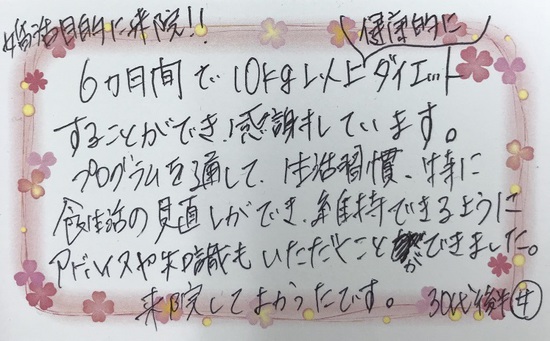 婚活目的に来院!!
健康的に
6カ月間で10kg以上ダイエット
することができ、感謝しています。
プログラムを通して、生活習慣、特に
食生活の見直しができ、維持できるように
アドバイスや知識もいただくことができました。
来院してよかったです。
30代後半 女